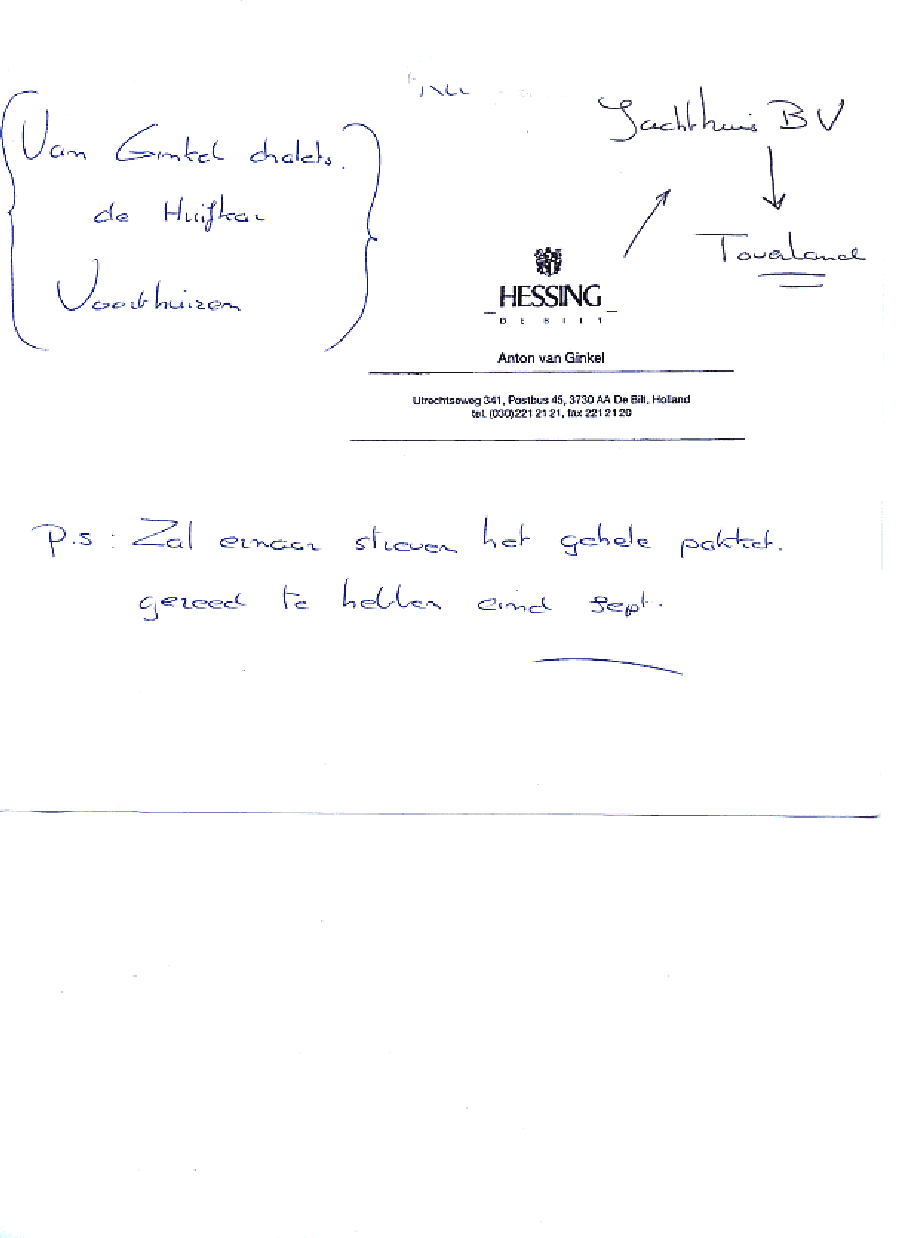 Van Ginkel chalets.
de Huifkar
Voorthuizen
Jachthuis BV
Toverland
HESSING
DE BILT
Anton van Ginkel
Utrechtseweg 341, Postbus 45, 3730 AA De Bilt, Holland
tel. (030)221 21 21, fax 221 21 20
P.S: Zal ernaar streven het gehele pakket.
gereed te hebben eind sept.